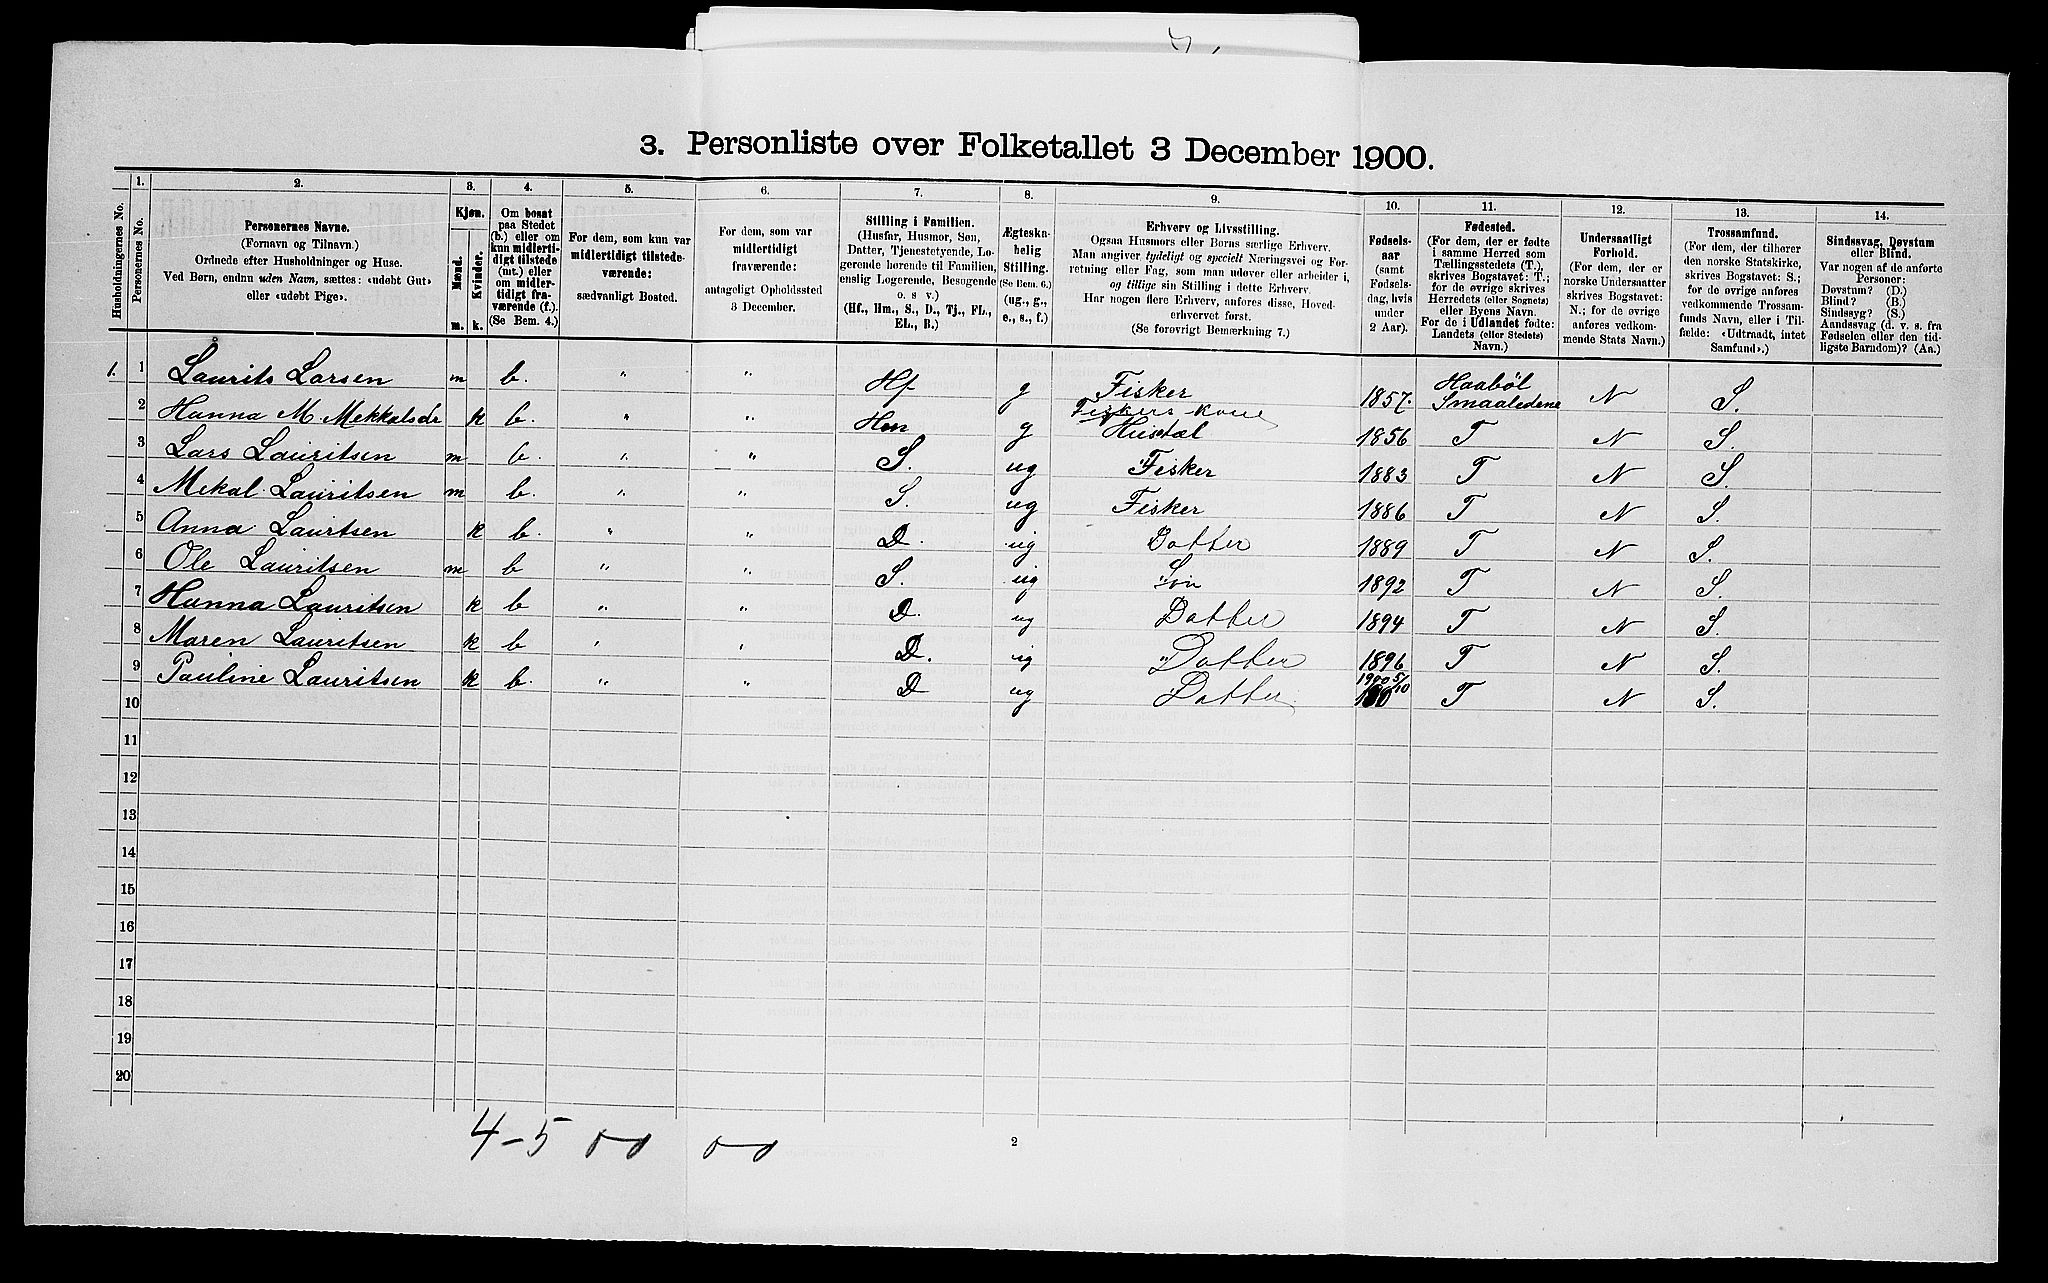 3. Personliste over Folketallet 3 December 1900.
Husholdningernes No.
1.
Personernes No.
2.
Personernes Navne.
(Fornavn og Tilnavn.)
Ordnede efter Husholdninger og Huse.
Ved Børn, endnu uden Navn, sættes: «udøbt Gut»
eller «udøbt Pige».
3.
Kjøn.
Mænd.
Kvinder.
m.
k.
4.
Om bosat
paa Stedet
(b.) eller om
kun midlerti-
digt tilstede
(mt.) eller
om midler-
tidigt fra-
værende (f.).
(Se Bem. 4.)
5.
For dem, som kun var
midlertidigt tilstede-
værende:
sædvanligt Bosted.
6.
For dem, som var
midlertidigt
fraværende:
antageligt Opholdssted
3 December.
7.
Stilling i Familien.
(Husfar, Husmor, Søn,
Datter, Tjenestetyende, Lo-
gerende hørende til Familien,
enslig Logerende, Besøgende
o. s v.)
(Hf., Hm., S., D., Tj., FL.,
EL., B.)
8.
Ægteska-
belig
Stilling.
(Se Bem. 6.)
(ug., g.,
e., s., f.)
9.
Erhverv og Livsstilling.
Ogsaa Husmors eller Børns særlige Erhverv.
Man angiver tydeligt og specielt Næringsvei og For-
retning eller Fag, som man udøver eller arbeider i,
og tillige sin Stilling i dette Erhverv.
Har nogen flere Erhverv, anføres disse, Hoved-
erhvervet først.
(Se forøvrigt Bemærkning 7.)
10.
Fødsels-
aar
(samt
Fødsels-
dag, hvis
under
2 Aar).
11.
Fødested.
(For dem, der er fødte
i samme Herred som
Tællingsstedets (T.),
skrives Bogstavet: T.;
for de øvrige skrives
Herredets (eller Sognets)
eller Byens Navn.
For de i Udlandet fødte:
Landets (eller Stedets)
Navn.)
12.
Undersaatligt
Forhold.
(For dem, der er
norske Undersaatter
skrives Bogstavet:
N.; for de øvrige
anføres vedkom-
mende Stats Navn.)
13.
Trossamfund.
(For dem, der tilhører
den norske Statskirke,
skrives Bogstavet: S.;
for de øvrige anføres
vedkommende Trossam-
funds Navn, eller i Til-
fælde: «Udtraadt, intet
Samfund».)
14.
Sindssvag, Døvstum
eller Blind.
Var nogen af de anførte
Personer:
Døvstum? (D.)
Blind? (B.)
Sindssyg? (S.)
Aandssvag (d. v. s. fra
Fødselen eller den tid-
ligste Barndom)? (Aa.)
1. 1 Laurits Larsen m b. " " Hf g Fisker 1857. Haabøl Smaaledene N S.
2 Hanna M. Mekkalsdr k b. " " Hm g Fiskers kone Hustal 1856 T N S.
3 Lars Lauritsen m b. " " S. ug Fisker 1883 T N S.
4 Mekal Lauritsen m b. " " S. ug Fisker 1886 T N S.
5 Anna Laurtsen k b. " " D. ug Datter 1889 T N S.
6 Ole Lauritsen m b " " S. ug Søn 1892 T N S.
7 Hanna Lauritsen k b " " D. ug Datter 1894 T N S.
8 Maren Lauritsen k b " " D. ug Datter 1896 T N S.
9 Pauline Lauritsen k b. " " D ug Datter 1900 5/10 T N S.
10
11
12
13
14
15
16
17
18
19
20
4-5 00 00
2